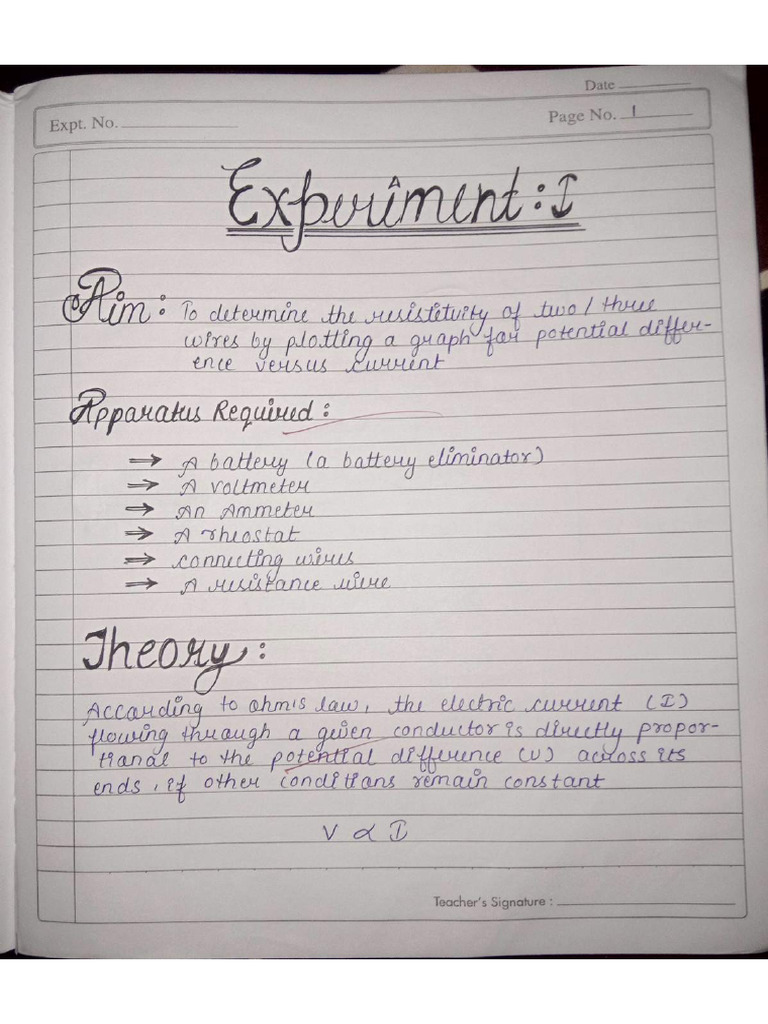 Date
Expt. No.
Page No. 1
Experiment: I
Aim: To determine the resistivity of two/three
wires by plotting a graph for potential differ-
ence versus current
Apparatus Required:
⇒ A battery (a battery eliminator)
⇒ A voltmeter
⇒ An Ammeter
⇒ A rheostat
⇒ connecting wires
⇒ A resistance wire
Theory:
According to ohm's law, the electric current (I)
flowing through a given conductor is directly propor-
tional to the potential difference (V) across its
ends, if other conditions remain constant
V ∝ I
Teacher's Signature :